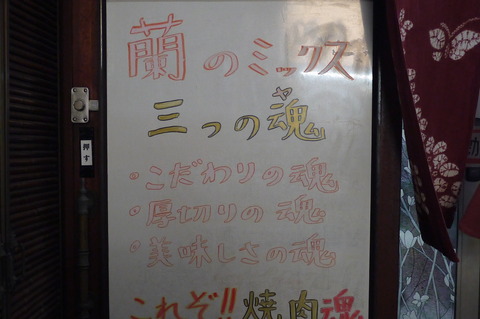 蘭のミックス
三つの魂
ヤマ
・こだわりの魂
・厚切りの魂
・美味しさの魂
これぞ!!焼肉魂
押す